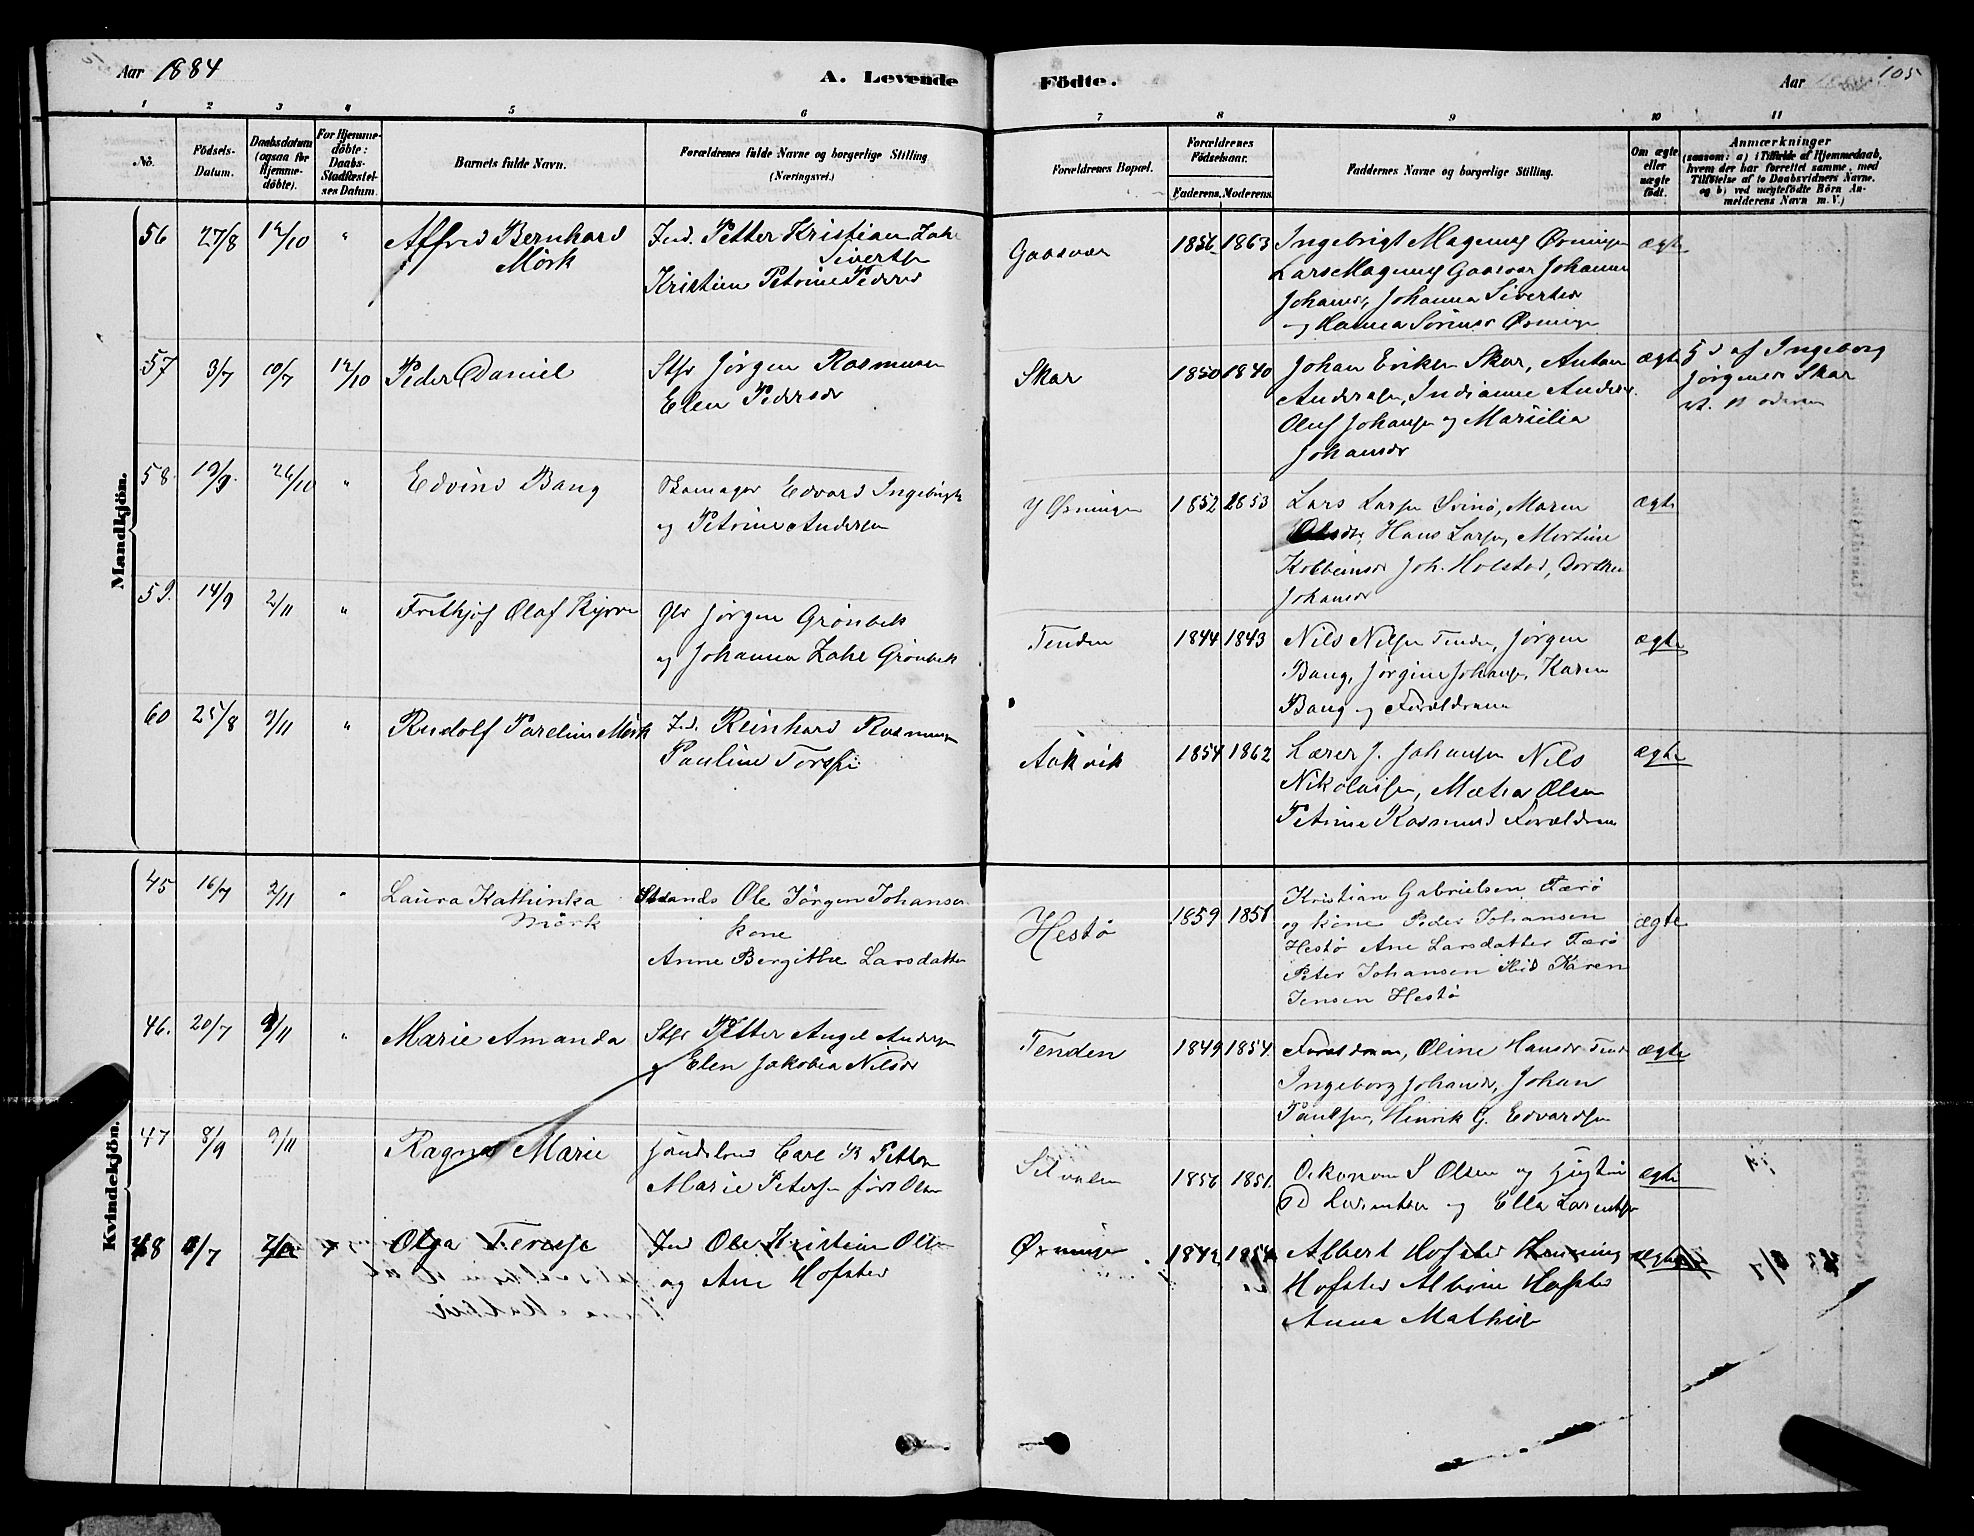 Aar 1884
A. Levende
Födte.
Aar
105
1 2 3 4 5 6 7 8 9 10 11
No.
Födsels-
Datum.
Daabsdatum
(ogsaa for
Hjemme-
döbte).
For Hjemme-
döbte:
Daabs-
Stadfæstel-
ses Datum.
Barnets fulde Navn.
Forældrenes fulde Navne og borgerlige Stilling
(Næringsvei.)
Forældrenes Bopæl.
Forældrenes
Födselsaar.
Faderens. Moderens.
Faddernes Navne og borgerlige Stilling.
Om ægte
eller
uægte
födt.
Anmærkninger
(saasom: a) i Tilfælde af Hjemmedaab,
hvem der har forrettet samme, med
Tilföielse af to Daabsvidners Navne.
og b) ved uægtefödte Börn An-
melderens Navn m. V.)
Mandkjön.
56 27/8 12/10 "
Alfred Bernhard
Mörk
Ind. Petter Kristian Zahl
Sivertsen
Kristine Petrine Pedersd
Gaasvær
1856 1863
Ingebrigt Magnus Øxningen
Lars Magnus Gaasvær Johanna
Johansd, Johanna Sivertsd
og Hanna Sörensd Øxninge
ægte
57 3/7 10/7 12/10
Peder Daniel
Jörgen Rasmusen
Elen Pedersdr
Skar
1850 1840
Johan Eriksen Skar, Anton
Andersen, Indianne Andersd.
Oluf Johansen og Marselia
Johansdr
ægte
af Ingeborg
Jörgensdr Skar
58. 19/9. 26/10 "
Edvind Bang
Edvard Ingebrigts
og Petrine Andersen
Y Øxningen
1852 1853
Lars Larsen Svinö, Maren
Olsdtr, Hans Larsen, Mortine
Kolbeinsdr Joh. Holstad, Dorthea
Johansdr
ægte
59. 14/9 2/11 "
Frithjof Olaf Kyrre
Jörgen Grönbek
og Johanna Zahl Grönbek
Tenden
1844 1843
Nils Nilsen Tenden, Jörgen
Bang, Jörgine Johansen, Karen
Bang og Forældrene
ægte
60 25/8 9/11 "
Rudolf Parelius Mörk
Ind. Reinhard Rasmusen
Pauline
Aakvik
1854 1862
Lærer J. Johansen Nils
Nikolaisen, Mætha Olsen
Petrine Rasmusd Forældrene
ægte
Kvindekjön.
45 16/7 2/11 "
Laura Kathinka
Mörk
Ole Jörgen Johansen
kone
Anne Bergithe Larsdatter
Hestö
1859 1856
Kristian Gabrielsen Færö
og kone Peder Johansen
Hestö Ane Larsdatter Færö
Peter Johansen Karen
Jensen Hestö
ægte
46. 20/7 9/11 "
Marie Amanda
Petter Angel Andersen
og Elen Jakobia Nilsdr
Tenden
1849 1854
Forældrene, Oline Hansdr Tend
Ingeborg Johansd, Johan
Paulsen, Henrik G. Edvardsen
ægte
47 8/9 9/11
Ragna Marie
Carl Petter
Marie Petersen født Olsen
Selvalen
1856 1851
Oekonom S Olsen og
Lorentsen og Ella Lorentsen
ægte
48 /7
Olga Terese
Ind Ole Kristian Olsen
og Ane Hofsted
Øxningen
1842 1854
Albert Hofsted Henning
Hofsted Albine Hofsted
Anna Mathisen
ægte